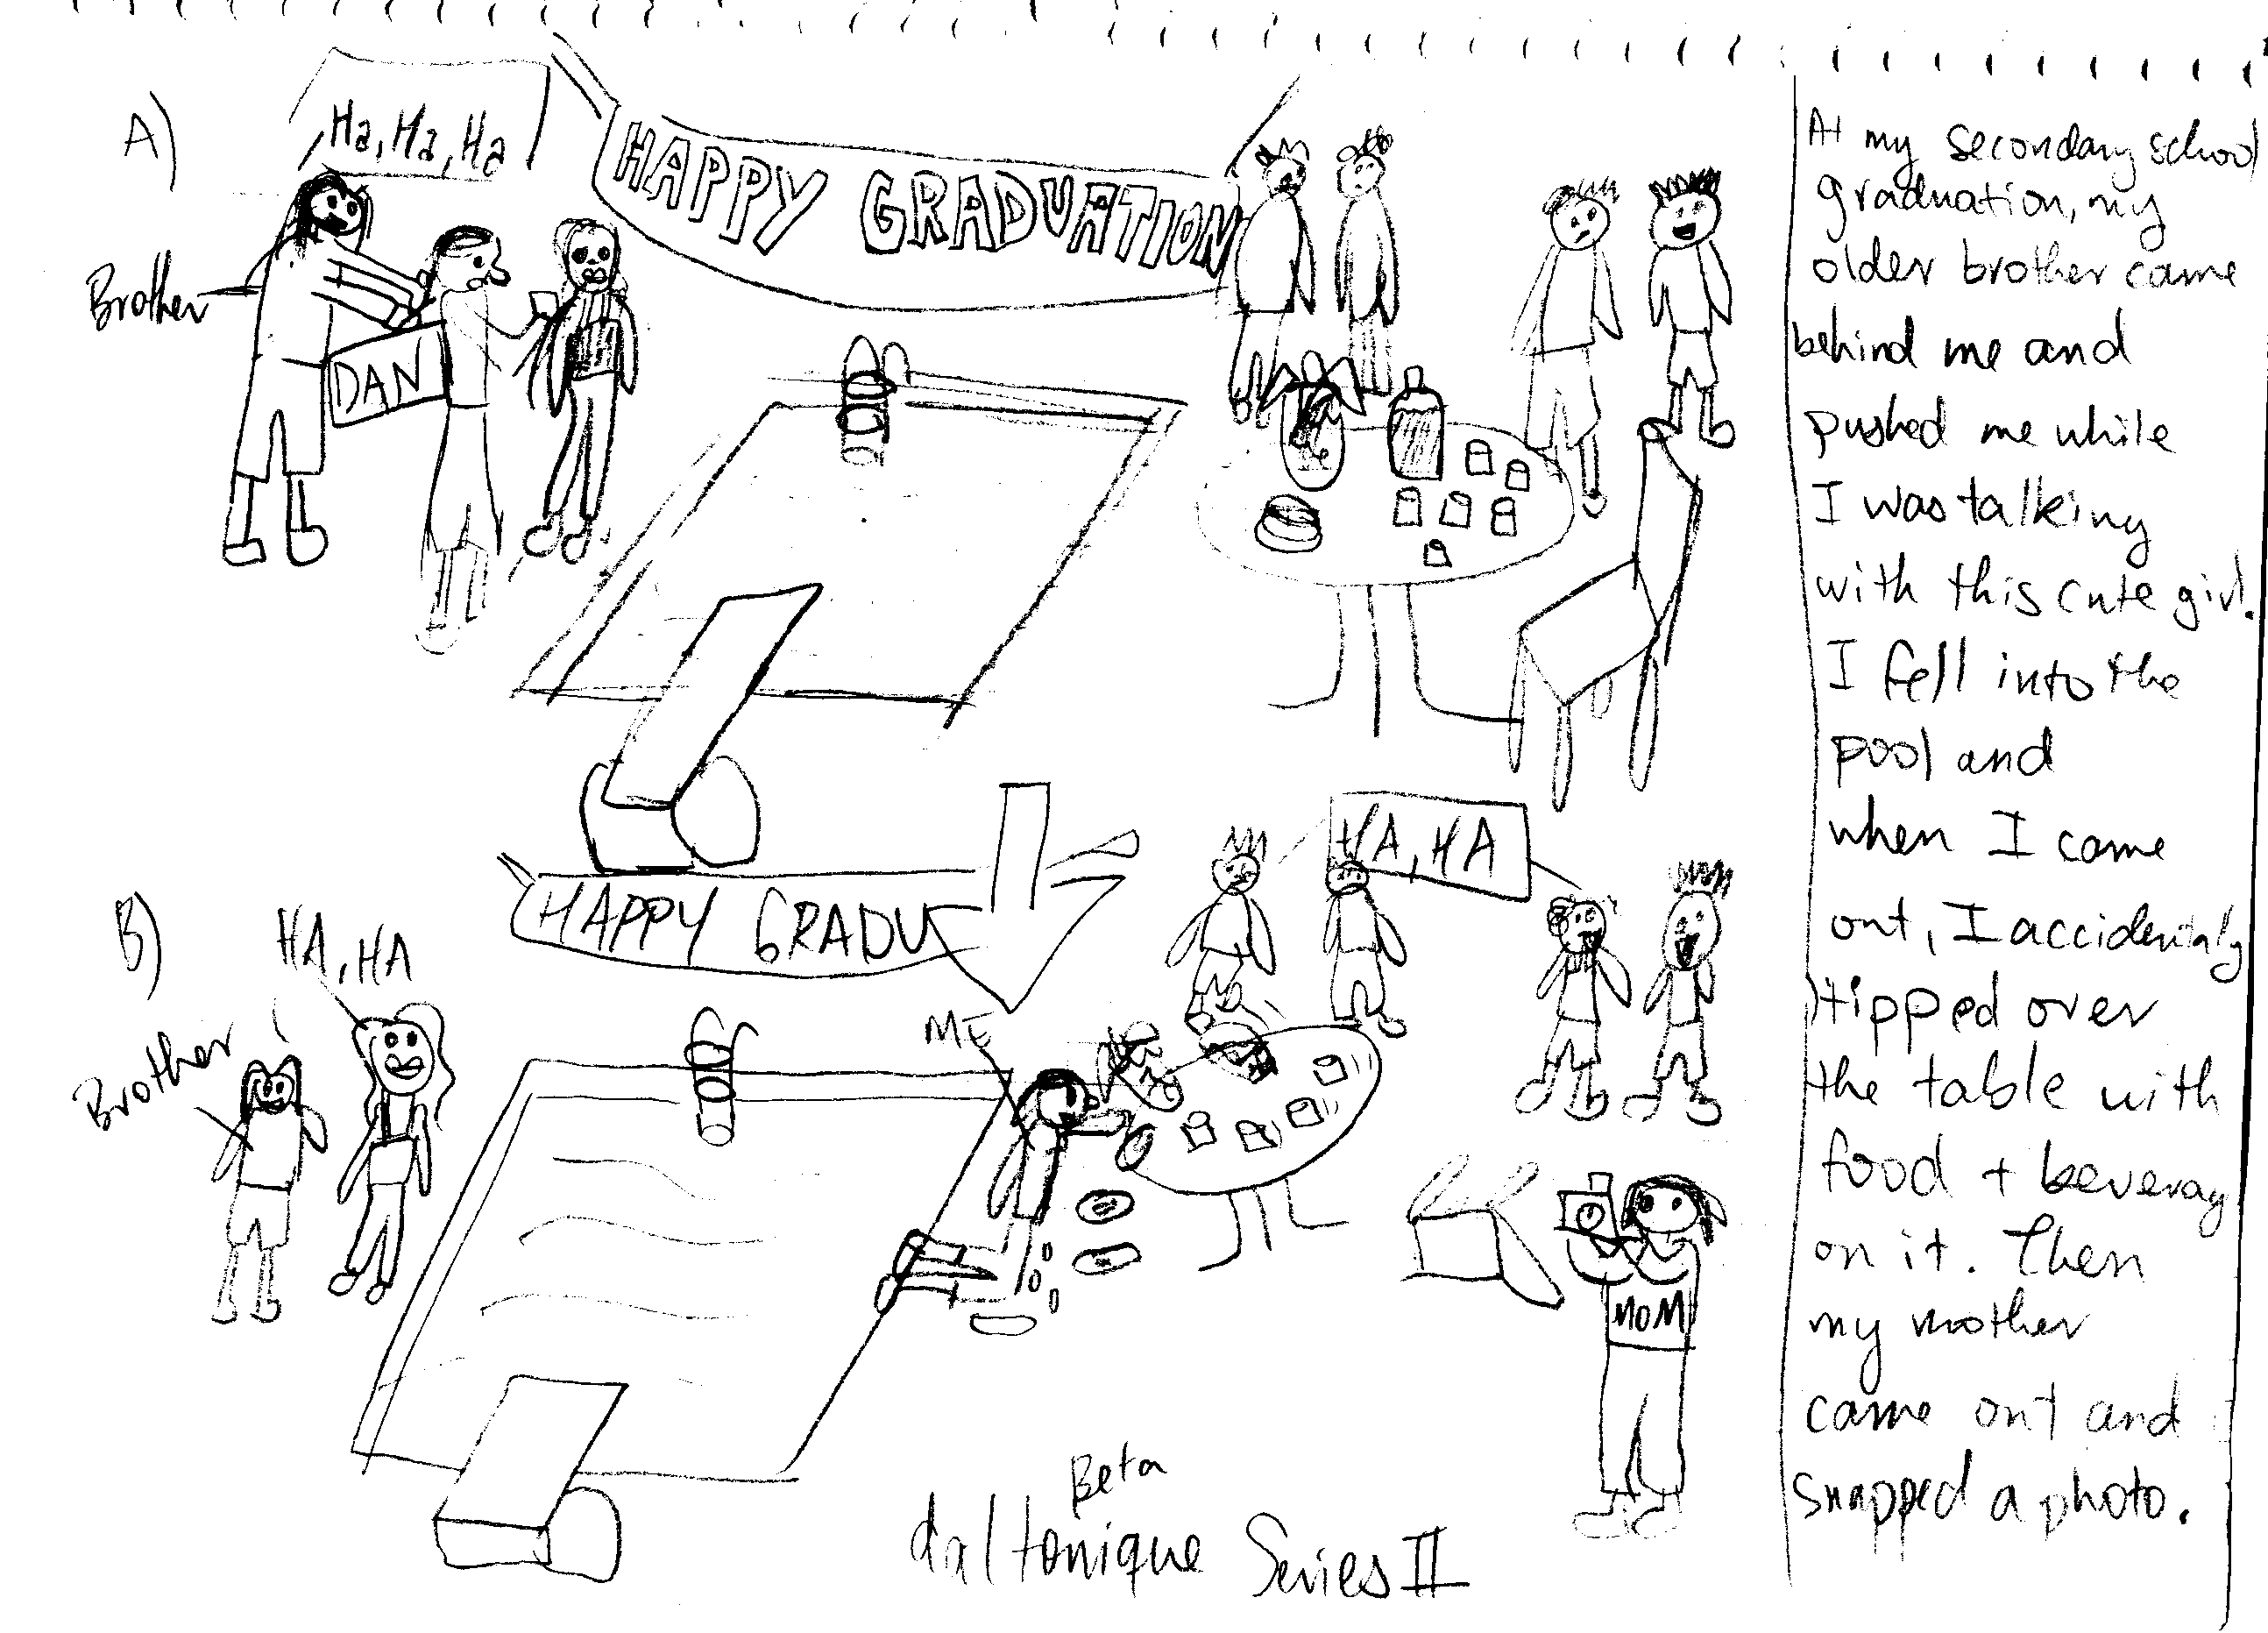 A)
Ha, Ha, Ha
HAPPY GRADUATION
Brother
DAN
B)
HA, HA
HAPPY GRADU
HA, HA
Brother
ME
MOM
Beta
daltonique Series II
At my secondary school
graduation, my
older brother came
behind me and
pushed me while
I was talking
with this cute girl.
I fell into the
pool and
when I came
out, I accidentaly
tipped over
the table with
food + beverag
on it. Then
my mother
came out and
snapped a photo.